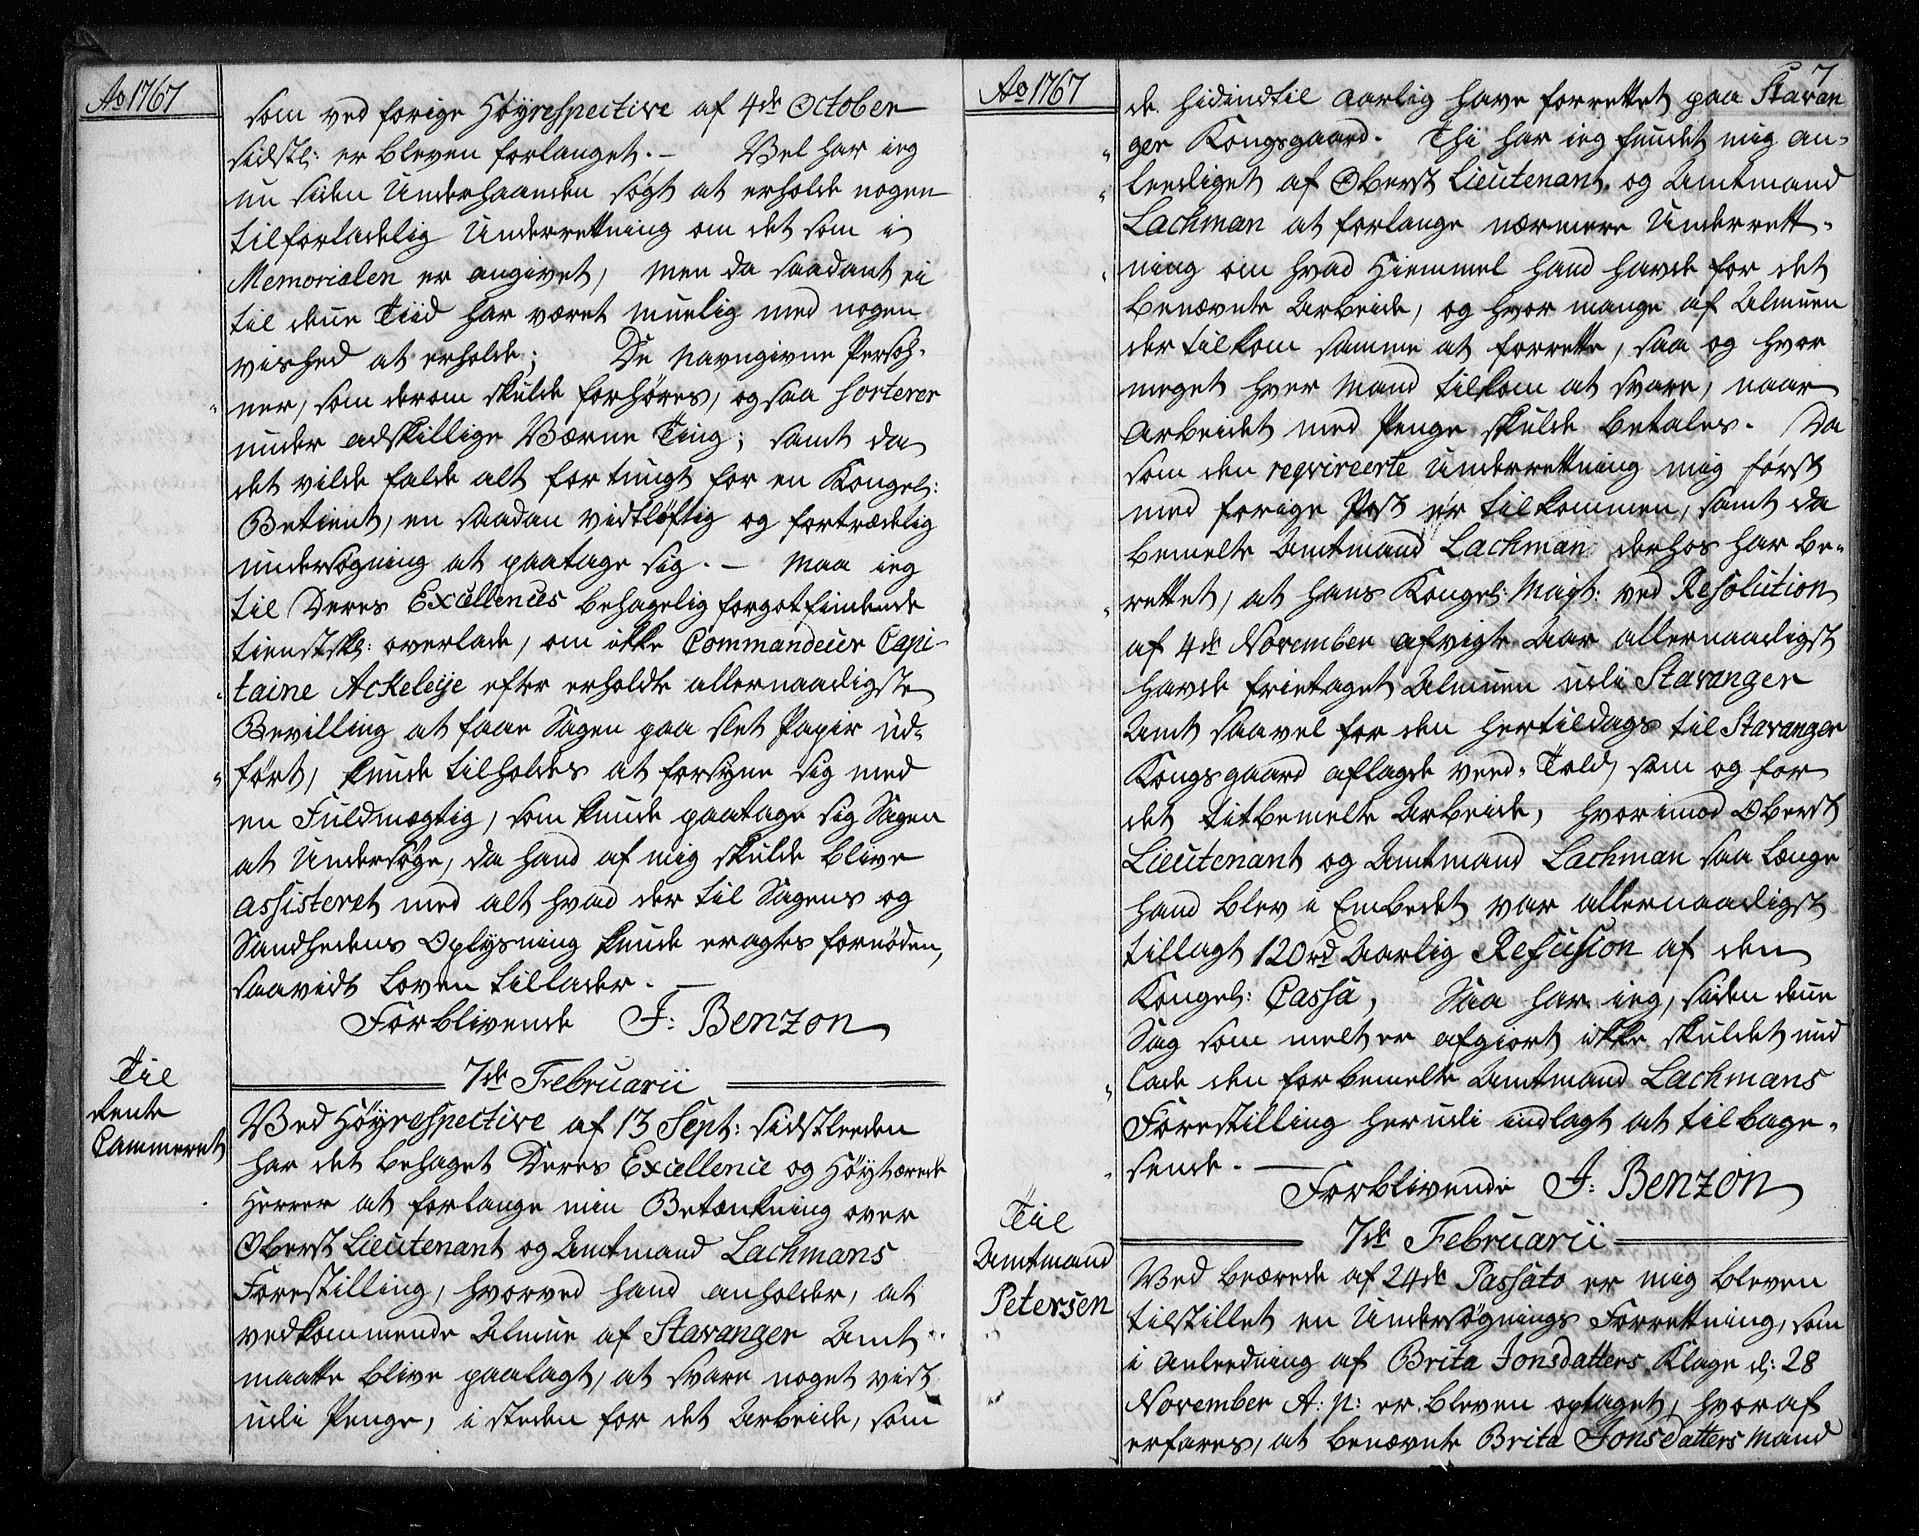 Ao 1767
som ved forige Høyrespective af 4de October
sidstl: er bleven forlanget. – Vel har ieg
nu siden Underhaanden søgt at erholde nogen
tilforladelig Underrettning om det som i
Memorialen er angivet, men da saadant ei
til denne Tiid har været muelig med nogen
vished at erholde; De navngivne Persoh-
ner, som derom skulde forhøres, og saa sorterer
under adskillige Værne Ting; samt da
det vilde falde alt for tungt for en Kongel:
Betient, en saadan vidtløftig og fortrædelig
undersøgning at paatage sig. – Maa ieg
til Deres Excellences behagelig forgotfindende
tienstskl: overlade, om ikke Commandeur Capi-
taine Ackeleije efter erholdte allernaadigste
Bevilling at faae Sagen paa slet Papir ud-
ført, kunde tilholdes at forsyne sig med
en Fuldmægtig, som kunde paatage sig Sagen
at Undersøge, da hand af mig skulde blive
assisteret med alt hvad der til Sagens og
Sandhedens Oplysning kunde eragtes fornøden,
saavidt Loven tillader. –
Forblivende J: Benzon
7de Februarii
Til
Rente
Cammeret
Ved Høyrespective af 13 Sept: sidstleeden
har det behaget Deres Excellence og Høystærede
Herrer at forlange min Betænkning over
Oberst Lieutenant og Amtmand Lachmans
Forestilling, hvorved hand anholder, at
vedkommende Almue af Stavanger Amt
maatte blive paalagt, at svare noget vist
udi Penge, i steden for det Arbeide, som
Ao 1767
7
de hidindtil aarlig have forrettet paa Stavan
ger Kongsgaard. Thi har ieg fundet mig an-
leediget af Oberst Lieutenant og Amtmand
Lachman at forlange nærmere Underrett-
ning om hvad Hiemmel hand havde for det
benævnte Arbeide, og hvor mange af Almuen
der tilkom samme at forrette, saa og hvor
meget hver Mand tilkom at svare, naar
Arbeidet med Penge skulde betales. Da
som den reqvireerte Underrettning mig først
med forige Post er tilkommen, samt da
bemelte Amtmand Lachman derhos har be-
rettet, at Hans Kongel: Mayt: ved Resolution
af 4de November afvigte Aar allernaadigst
havde frietaget Almuen udi Stavanger
Amt saavel for den hertildags til Stavanger
Kongsgaard aflagde veed-Told, som og for
det titbemelte Arbeide, hvorimod Oberst
Lieutenant og Amtmand Lachman saa længe
hand blev i Embedet var allernaadigst
tillagt 120 rd Aarlig Refusion af den
Kongel: Cassa, Saa har ieg, siden denne
Sag som melt er afgiort ikke skuldet und
lade den forbemelte Amtmand Lachmans
Forestilling herudi indlagt at tilbage-
sende. –
Forblivende J: Benzon
7de Februarii
Til
Amtmand
Petersen
Ved beærede af 24de Passato er mig bleven
tilstillet en Undersøgnings Forrettning, som
i Anleedning af Brita Jonsdatters Klage d: 28
November A: p: er bleven optaget, hvoraf
erfares, at benævnte Brita Jonsdatters Mand